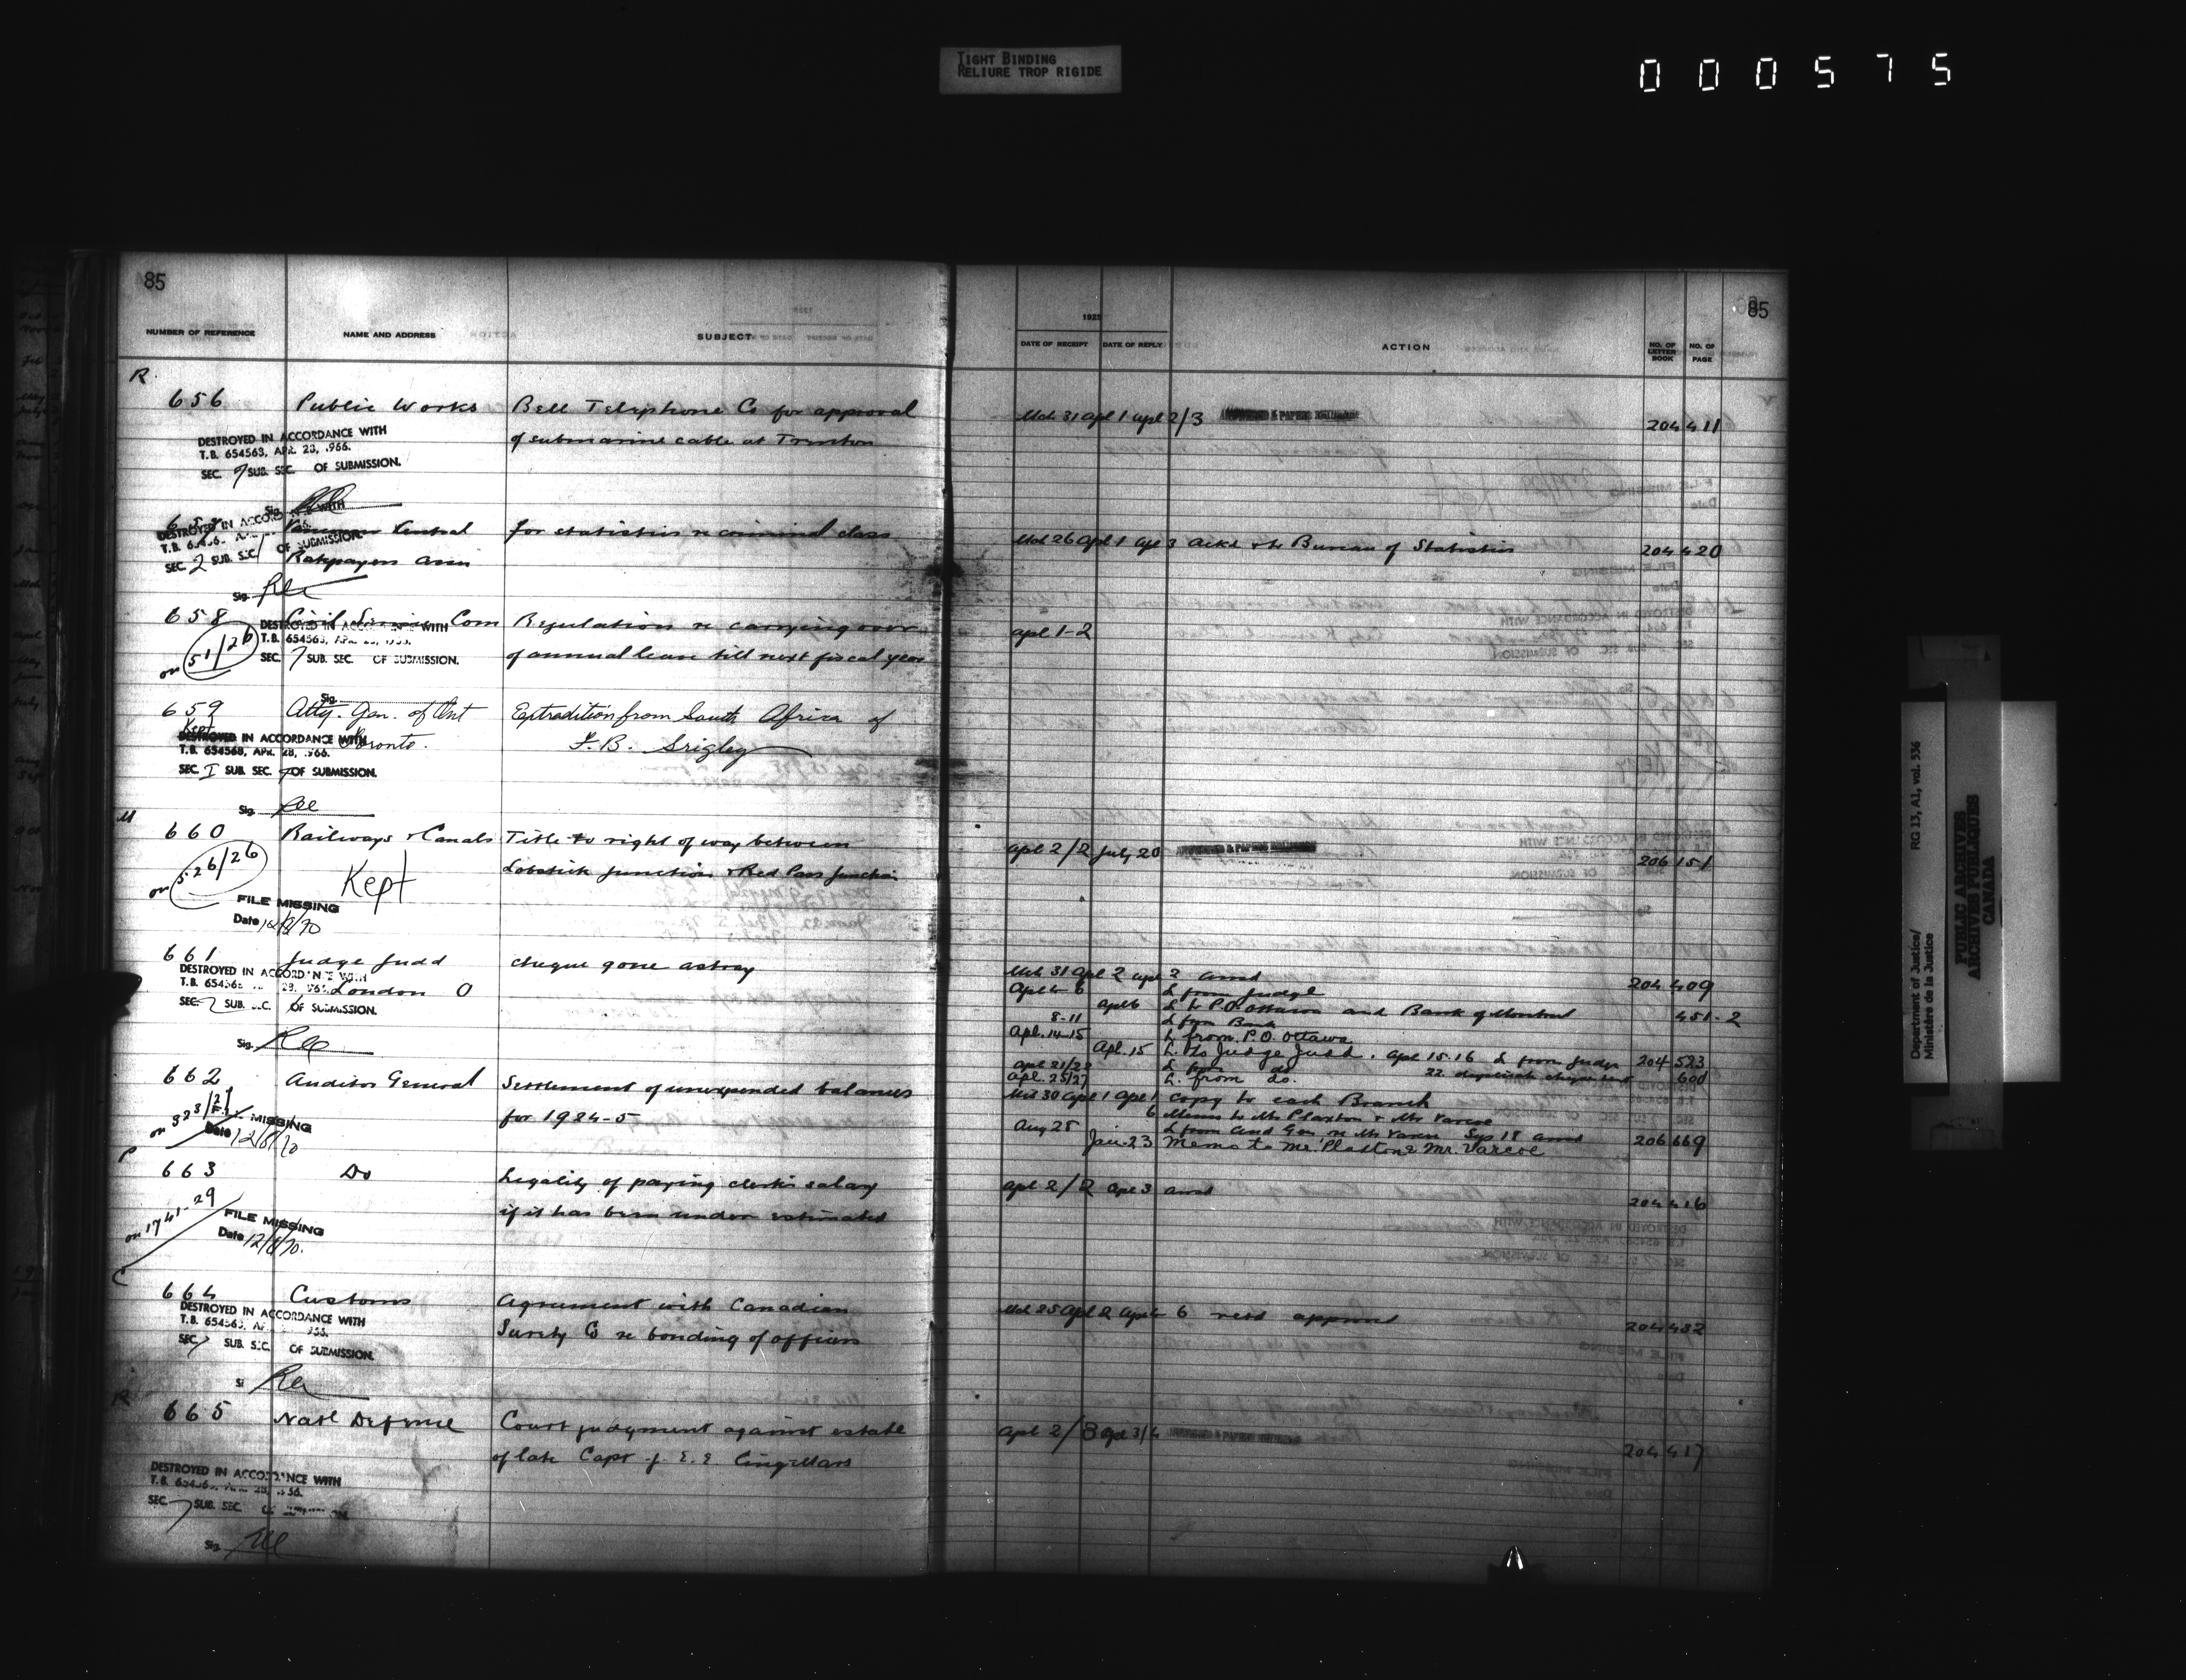 TIGHT BINDING
RELIURE TROP RIGIDE
000575
85
NUMBER OF REFERENCE NAME AND ADDRESS SUBJECT
R
656 Public Works Bell Telephone Co for approval
of submarine cable at Trenton
DESTROYED IN ACCORDANCE WITH
T.B. 654563, APR. 28, 1966.
SEC. 7 SUB. SEC. OF SUBMISSION.
Sig.
657 Central for statistics re criminal class
Ratepayers Assn
DESTROYED IN ACCORDANCE WITH
T.B.
SEC. 2 SUB. SEC. 1 OF SUBMISSION.
Sig.
658 Civil Service Com Regulations re carrying over
of annual leave till next fiscal year
on 51/26
DESTROYED IN ACCORDANCE WITH
T.B. 654563, APR. 28, 1966.
SEC. 7 SUB. SEC. OF SUBMISSION.
Sig.
659 Atty. Gen. of Ont Extradition from South Africa of
Toronto. F.B. Srigley
Kept
DESTROYED IN ACCORDANCE WITH
T.B. 654563, APR. 28, 1966.
SEC. I SUB. SEC. OF SUBMISSION.
Sig.
M
660 Railways & Canals Title to right of way between
Lobstick Junction & Red Pass Junction
on 526/26
Kept
FILE MISSING
Date 12/8/70
661 Judge Judd cheque gone astray
London O
DESTROYED IN ACCORDANCE WITH
T.B. 654563 28, 1966
SEC. 2 SUB. SEC. OF SUBMISSION.
Sig.
662 Auditor General Settlement of unexpended balances
for 1924-5
on 323/21
FILE MISSING
Date 12/8/70
663 Do Legality of paying clerk's salary
if it has been under estimated
on 1741-29
FILE MISSING
Date 12/8/70.
C
664 Customs Agreement with Canadian
Surety Co re bonding of officers
DESTROYED IN ACCORDANCE WITH
T.B. 654563,
SEC. 7 SUB. SEC. OF SUBMISSION.
R
665 Natl Defence Court judgment against estate
of late Capt J. E. E.
DESTROYED IN ACCORDANCE WITH
SEC. 7 SUB. SEC.
Sig.
85
1925
DATE OF RECEIPT DATE OF REPLY ACTION NO. OF LETTER BOOK NO. OF PAGE
Mch 31 Apl 1 Apl 2/3 204 411
Mch 26 Apl 1 Apl 3 Ackd & to Bureau of Statistics 204 420
Apl 1-2
Apl 2/2 July 20 206 151
Mch 31 Apl 2 Apl 2 ansd 204 409
Apl 4 6 L from Judge
Apl 6 L to P.O. Ottawa and Bank of Montreal 451-2
8-11 L from Bank
Apl. 14-15 L from P.O. Ottawa
Apl. 15 L. to Judge Judd. Apl 15-16 L from Judge 204 523
Apl 21/22 L from do 22. duplicate cheque sent 600
Apl. 25/27 L. from do.
Mch 30 Apl 1 Apl 1 copy to each Branch
6 Memo to Mr Plaxton & Mr Varcoe
Aug 25 L from Aud Gen re Mr Varcoe Sep 18 ansd 206 669
Jan. 23 Memo to Mr. Plaxton & Mr. Varcoe
Apl 2/2 Apl 3 ansd 204 416
Mch 25 Apl 2 Apl 4 6 retd approved 204 432
Apl 2/3 Apl 3/4 204 417
Department of Justice/ RG 13, A1, vol. 536
Ministère de la Justice
PUBLIC ARCHIVES
ARCHIVES PUBLIQUES
CANADA